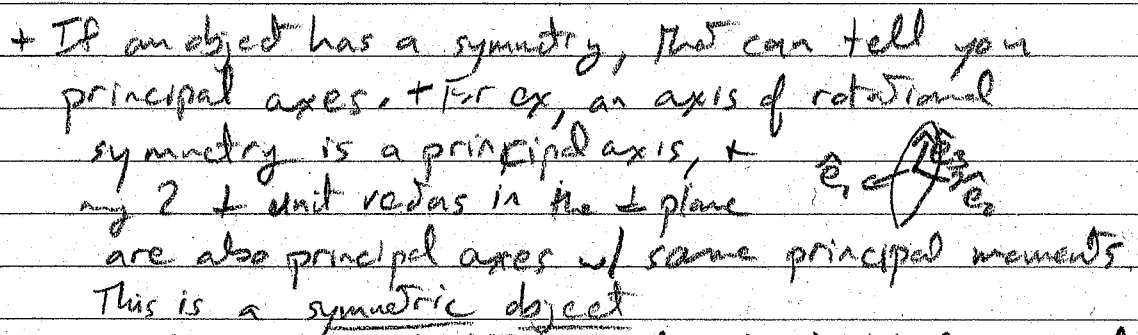 + If an object has a symmetry, that can tell you
principal axes. + For ex, an axis of rotational
symmetry is a principal axis, +
any 2 ⊥ unit vectors in the ⊥ plane
ê₁ ê₂
are also principal axes w/ same principal moments.
This is a symmetric object